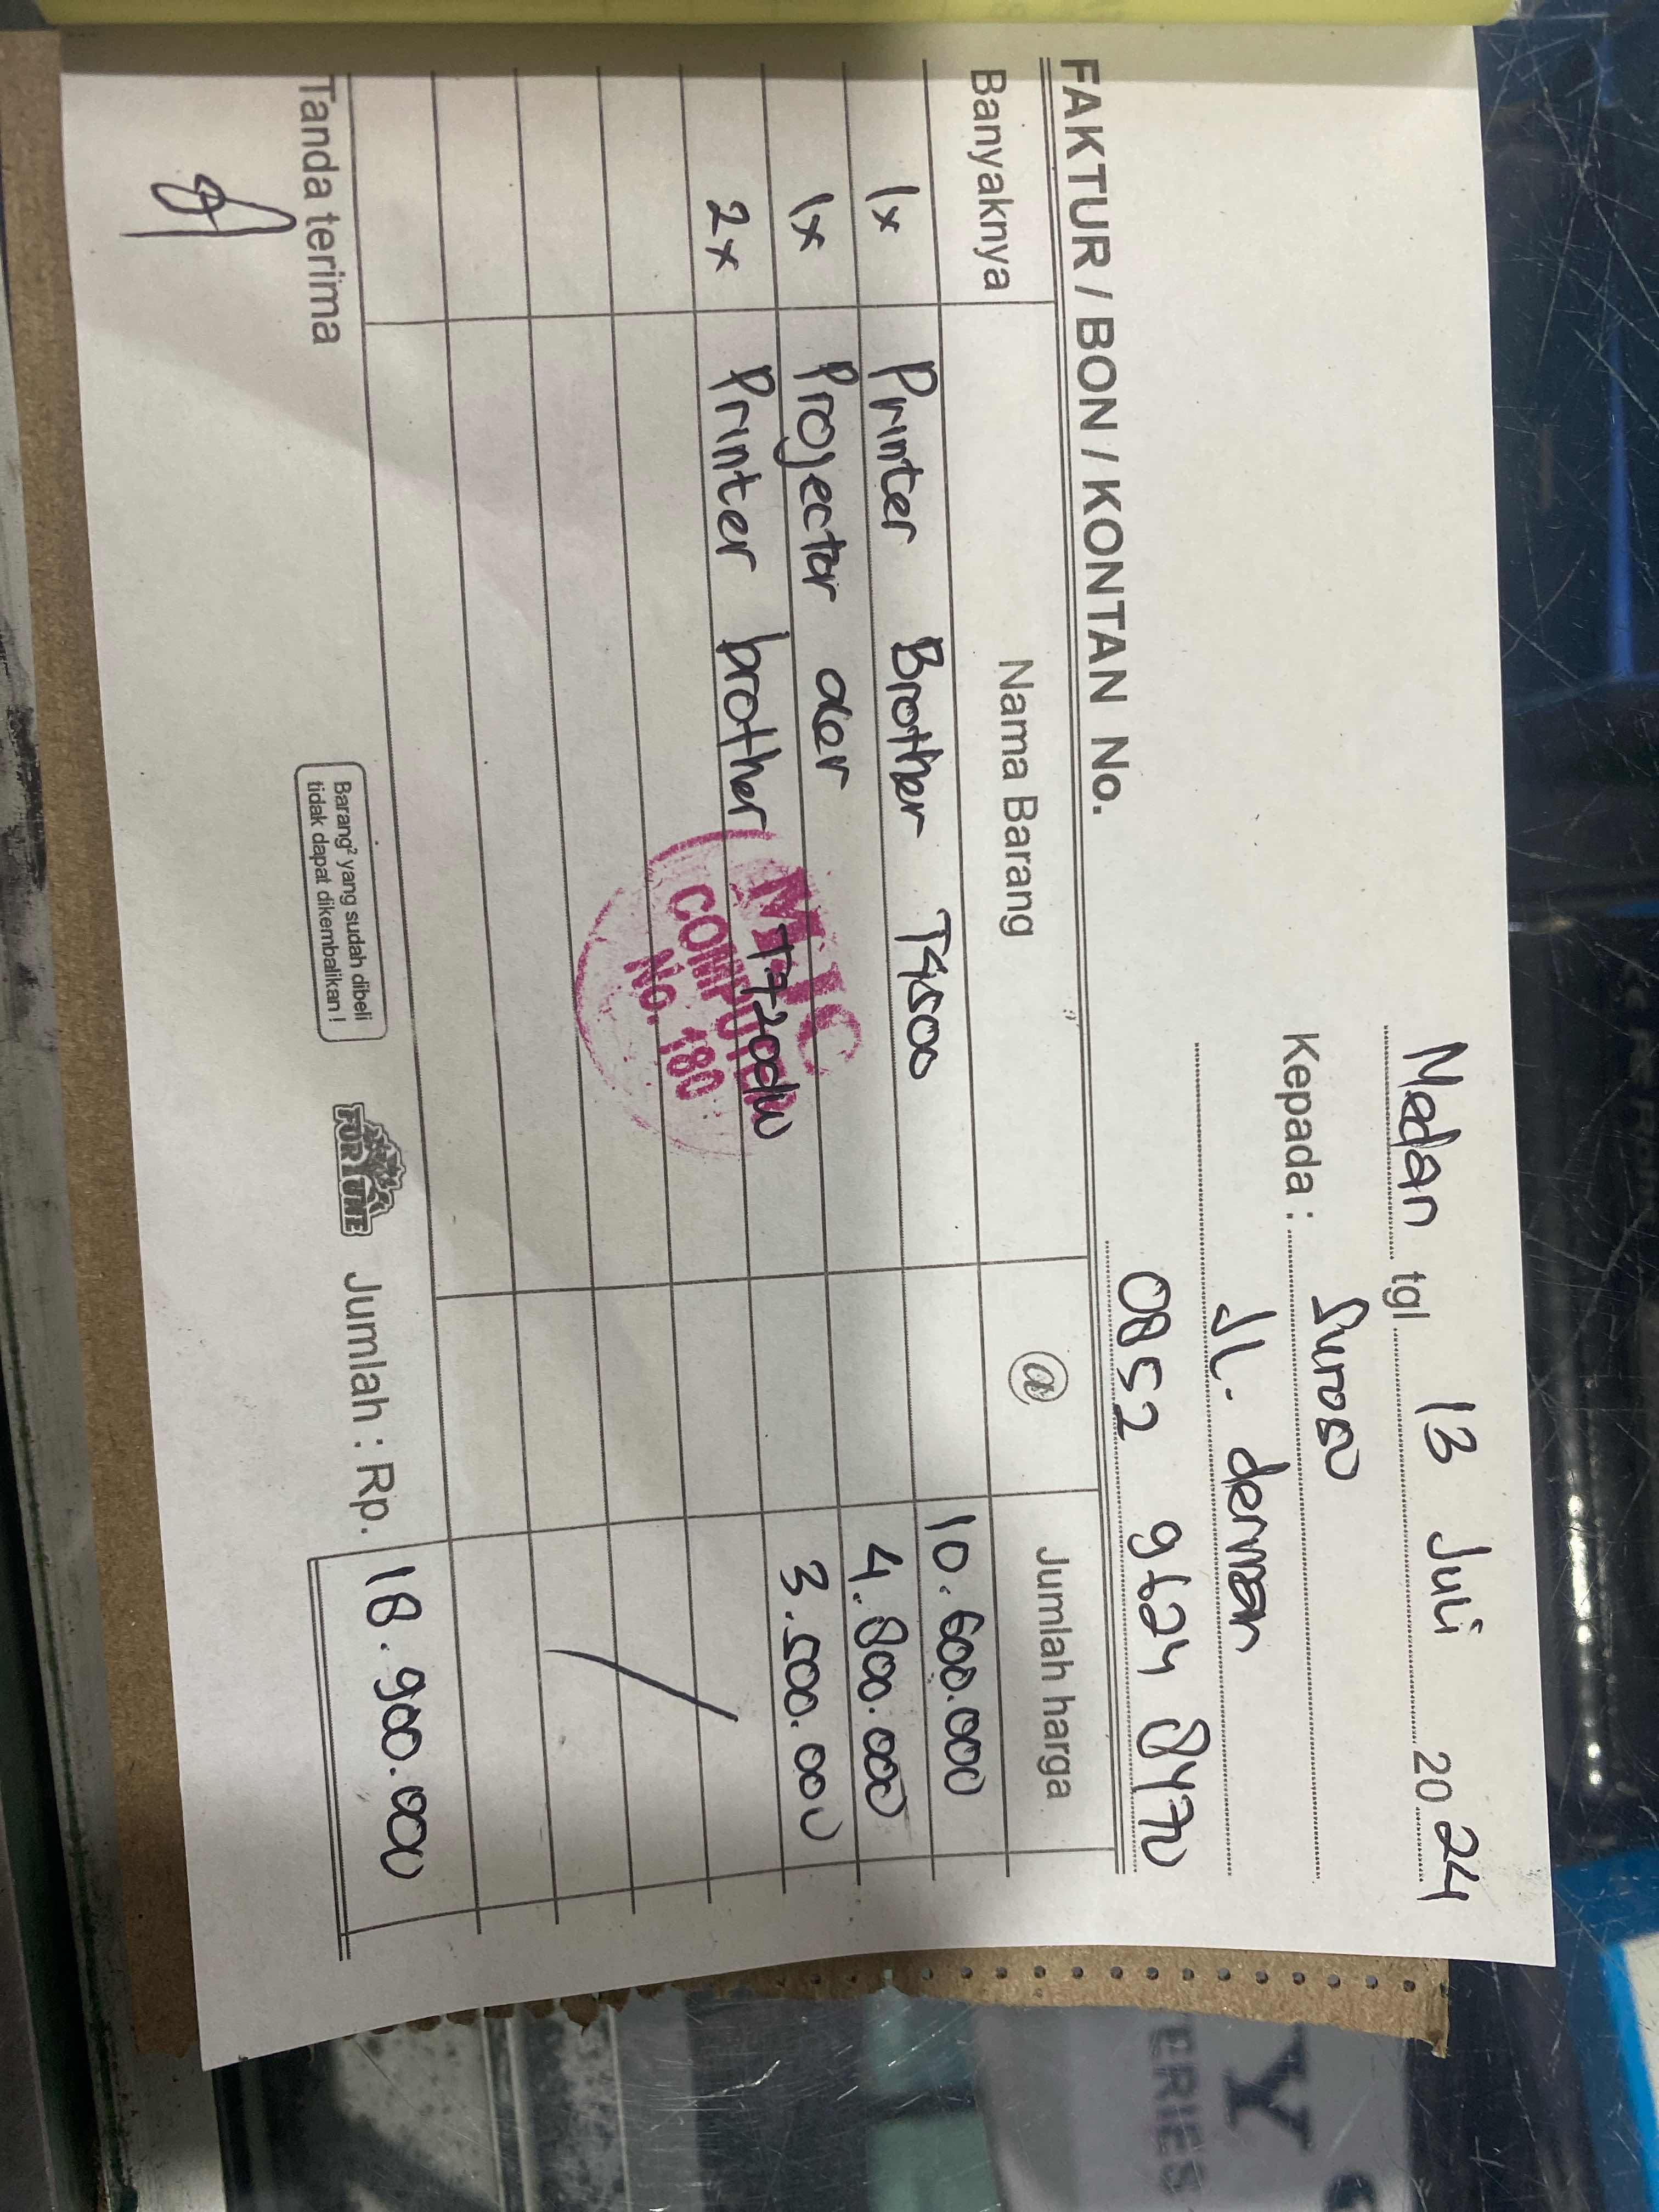 Medan tgl 13 Juli 2024
Kepada : Suroso
JL. derman
0852 9624 8470
FAKTUR / BON / KONTAN No.
Banyaknya Nama Barang @ Jumlah harga
1x Printer Brother T4500 10.600.000
1x Projector acer 4.800.000
2x Printer brother T720dw 3.500.000
MTC
COMPUTER
No. 180
Tanda terima
Barang² yang sudah dibeli
tidak dapat dikembalikan !
FORTUNE
Jumlah : Rp. 18.900.000
Y
ERIES